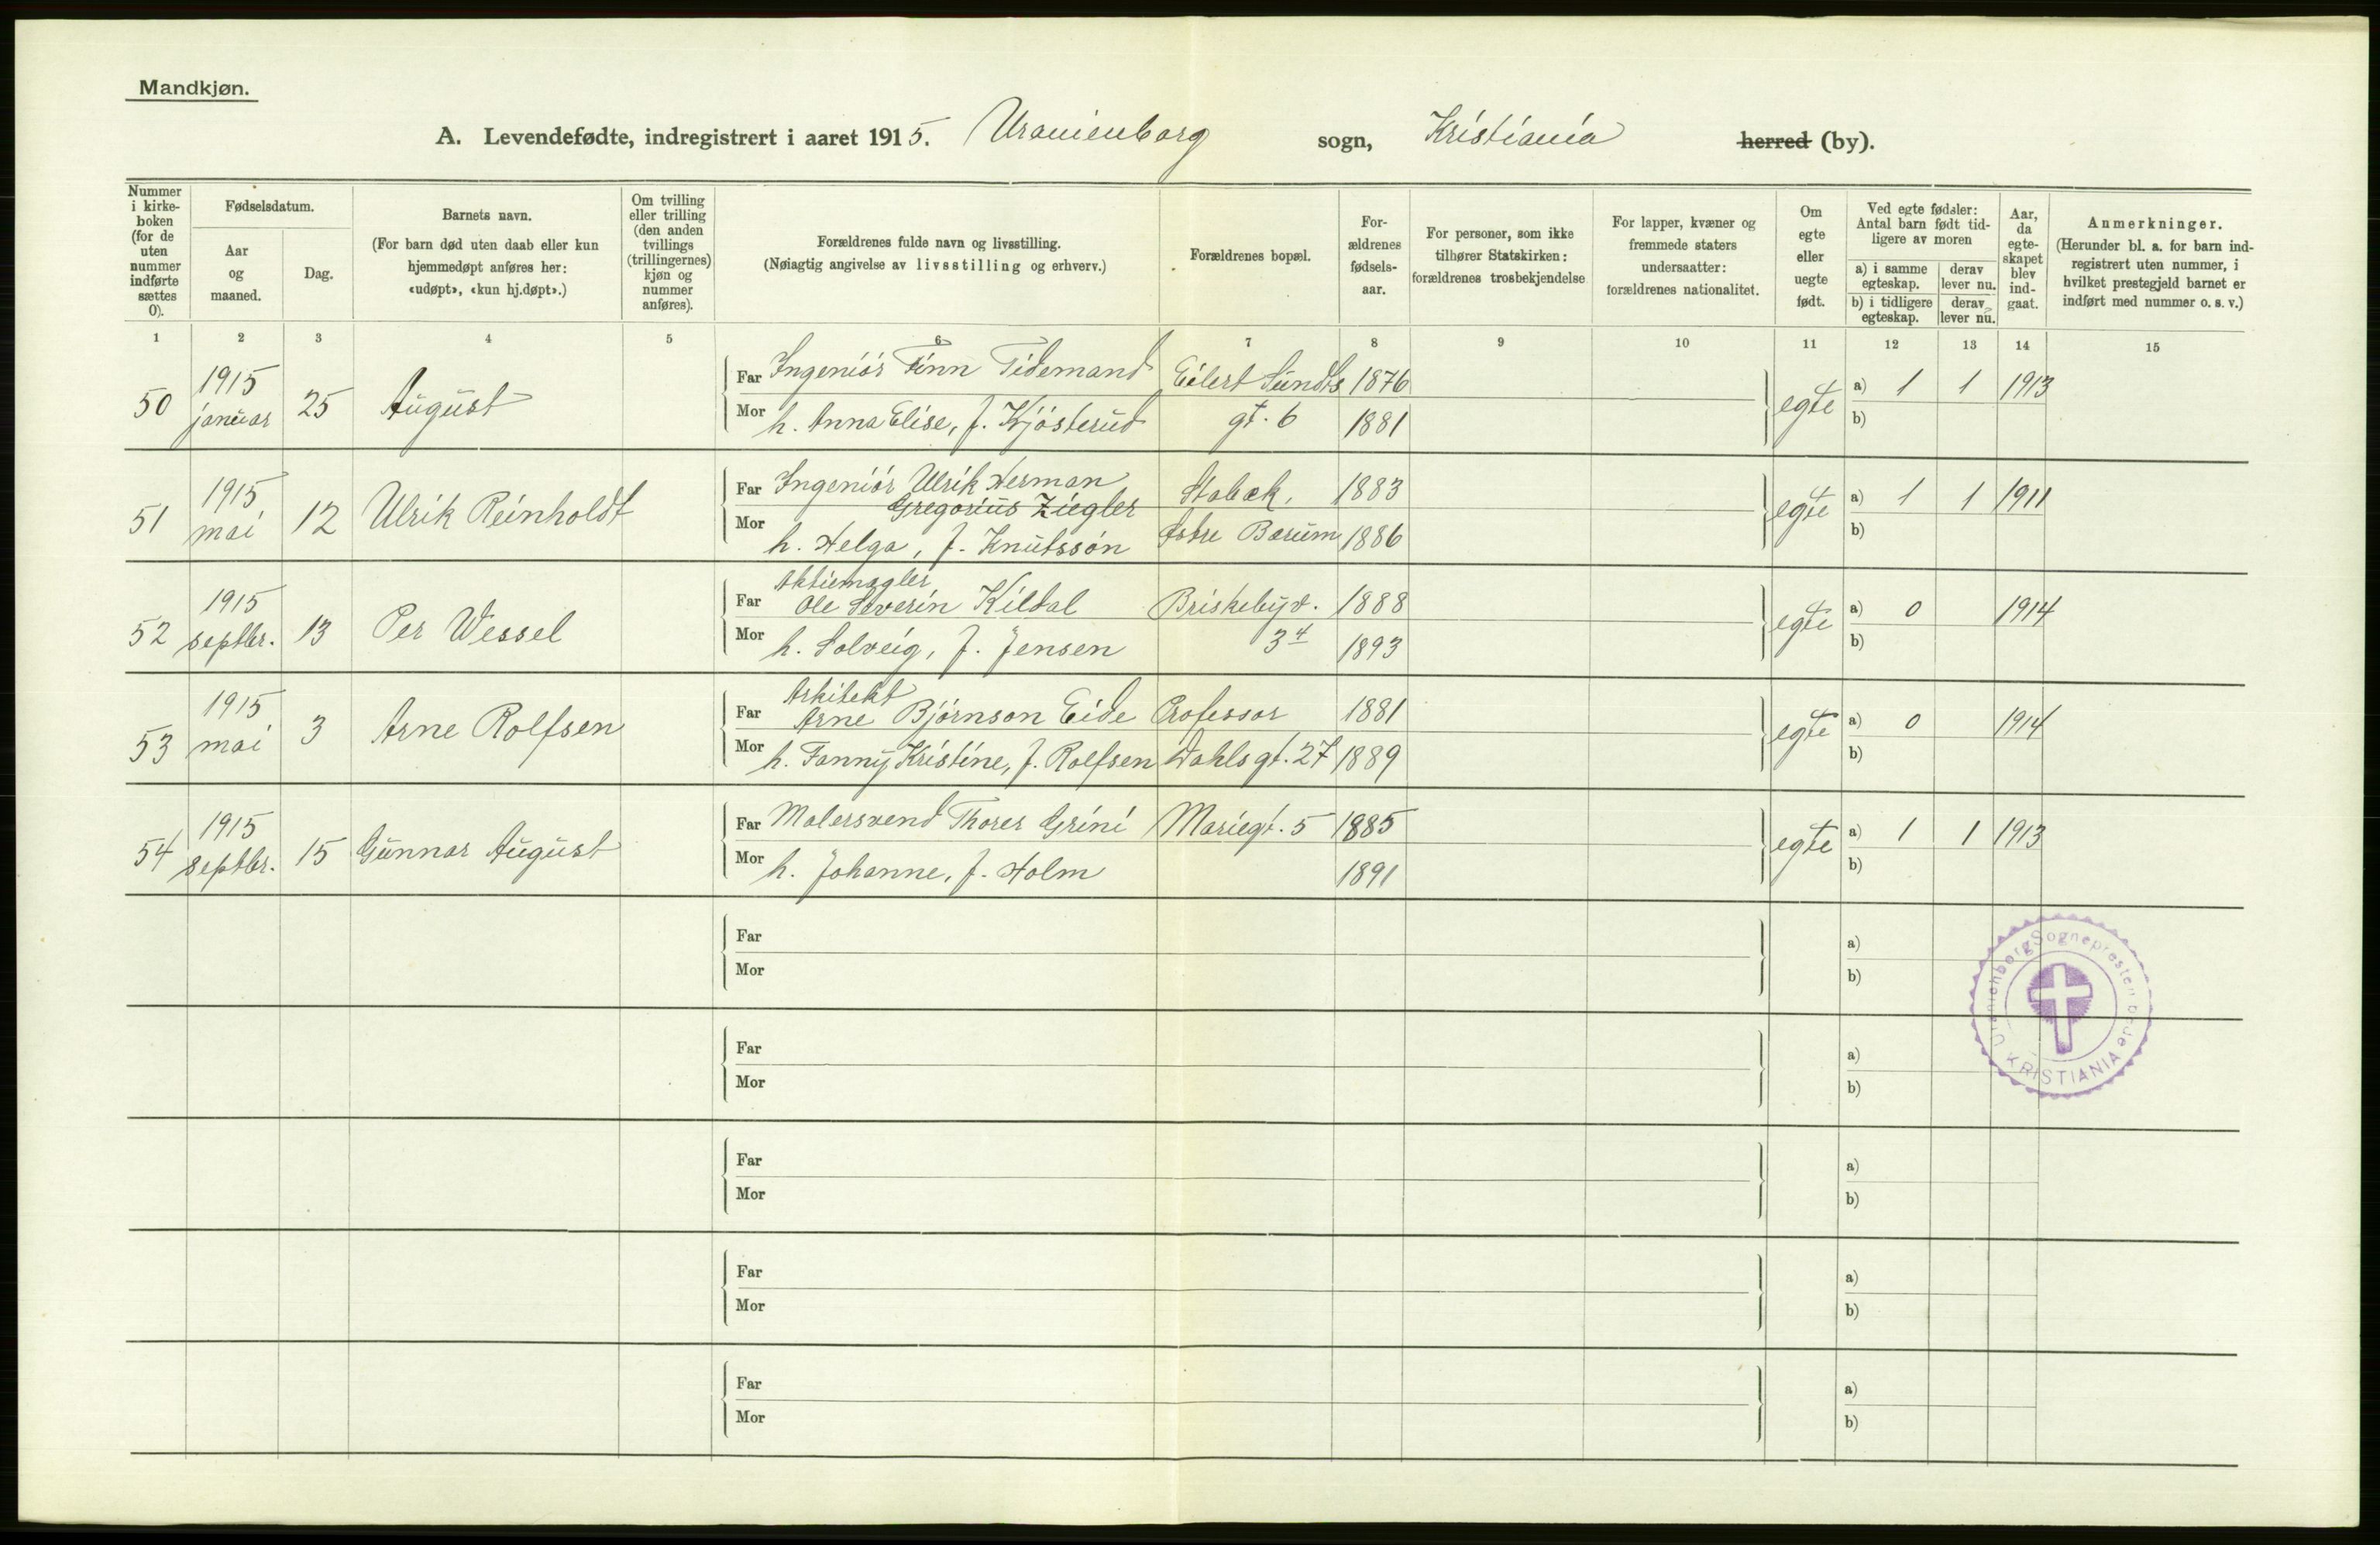 Mandkjøn.
A. Levendefødte, indregistrert i aaret 1915. Uranienborg sogn, Kristiania herred (by).
Nummer i kirke-boken (for de uten nummer indførte sættes 0).
Fødselsdatum.
Aar og maaned.
Dag.
Barnets navn.
(For barn død uten daab eller kun hjemmedøpt anføres her: «udøpt», «kun hj.døpt».)
Om tvilling eller trilling (den anden tvillings (trillingernes) kjøn og nummer anføres).
Forældrenes fulde navn og livsstilling.
(Nøiagtig angivelse av livsstilling og erhverv.)
Forældrenes bopæl.
For-ældrenes fødsels-aar.
For personer, som ikke tilhører Statskirken: forældrenes trosbekjendelse
For lapper, kvæner og fremmede staters undersaatter: forældrenes nationalitet.
Om egte eller uegte født.
Ved egte fødsler: Antal barn født tid-ligere av moren
a) i samme egteskap.
derav lever nu.
b) i tidligere egteskap.
derav lever nu.
Aar, da egte-skapet blev ind-gaat.
Anmerkninger.
(Herunder bl. a. for barn ind-registrert uten nummer, i hvilket prestegjeld barnet er indført med nummer o. s. v.)
1 2 3 4 5 6 7 8 9 10 11 12 13 14 15
50 1915 januar 25 August
Far Ingeniør Finn Tidemand Eilert Sundts 1876 egte a) 1 1 1913
Mor h. Anna Elise, f. Kjøsterud gt. 6 1881 b)
51 1915 mai 12 Ulrik Reinholdt
Far Ingeniør Ulrik Herman Gregorius Ziegler Stabæk, 1883 egte a) 1 1 1911
Mor h. Helga, f. Knutssøn Østre Bærum 1886 b)
52 1915 septbr. 13 Per Wessel
Far Aktiemægler Ole Severin Kildal Briskebyv. 1888 egte a) 0 1914
Mor h. Solveig, f. Jensen 34 1893 b)
53 1915 mai 3 Arne Rolfsen
Far Arkitekt Arne Bjørnson Eide Professor 1881 egte a) 0 1914
Mor h. Fanny Kristine, f. Rolfsen Dahls gt. 27 1889 b)
54 1915 septbr. 15 Gunnar August
Far Malersvend Thorer Grini Mariegt. 5 1885 egte a) 1 1 1913
Mor h. Johanne, f. Holm 1891 b)
Far a)
Mor b)
Far a)
Mor b)
Far a)
Mor b)
Far a)
Mor b)
Far a)
Mor b)
Uranienborg Sognepresten embede
KRISTIANIA